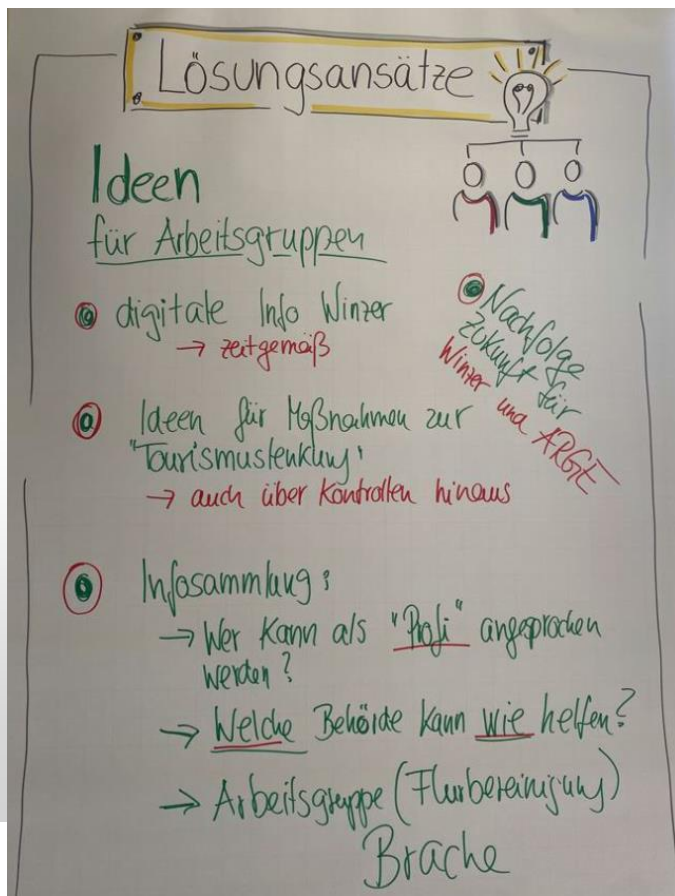 Lösungsansätze
Ideen
für Arbeitsgruppen
digitale Info Winzer
→ zeitgemäß
Nachfolge
Zukunft für
Winzer und ARGE
Ideen für Maßnahmen zur
"Tourismuslenkung"
→ auch über Kontrollen hinaus
Infosammlung:
→ Wer kann als "Profi" angesprochen
werden?
→ Welche Behörde kann wie helfen?
→ Arbeitsgruppe (Flurbereinigung)
Brache